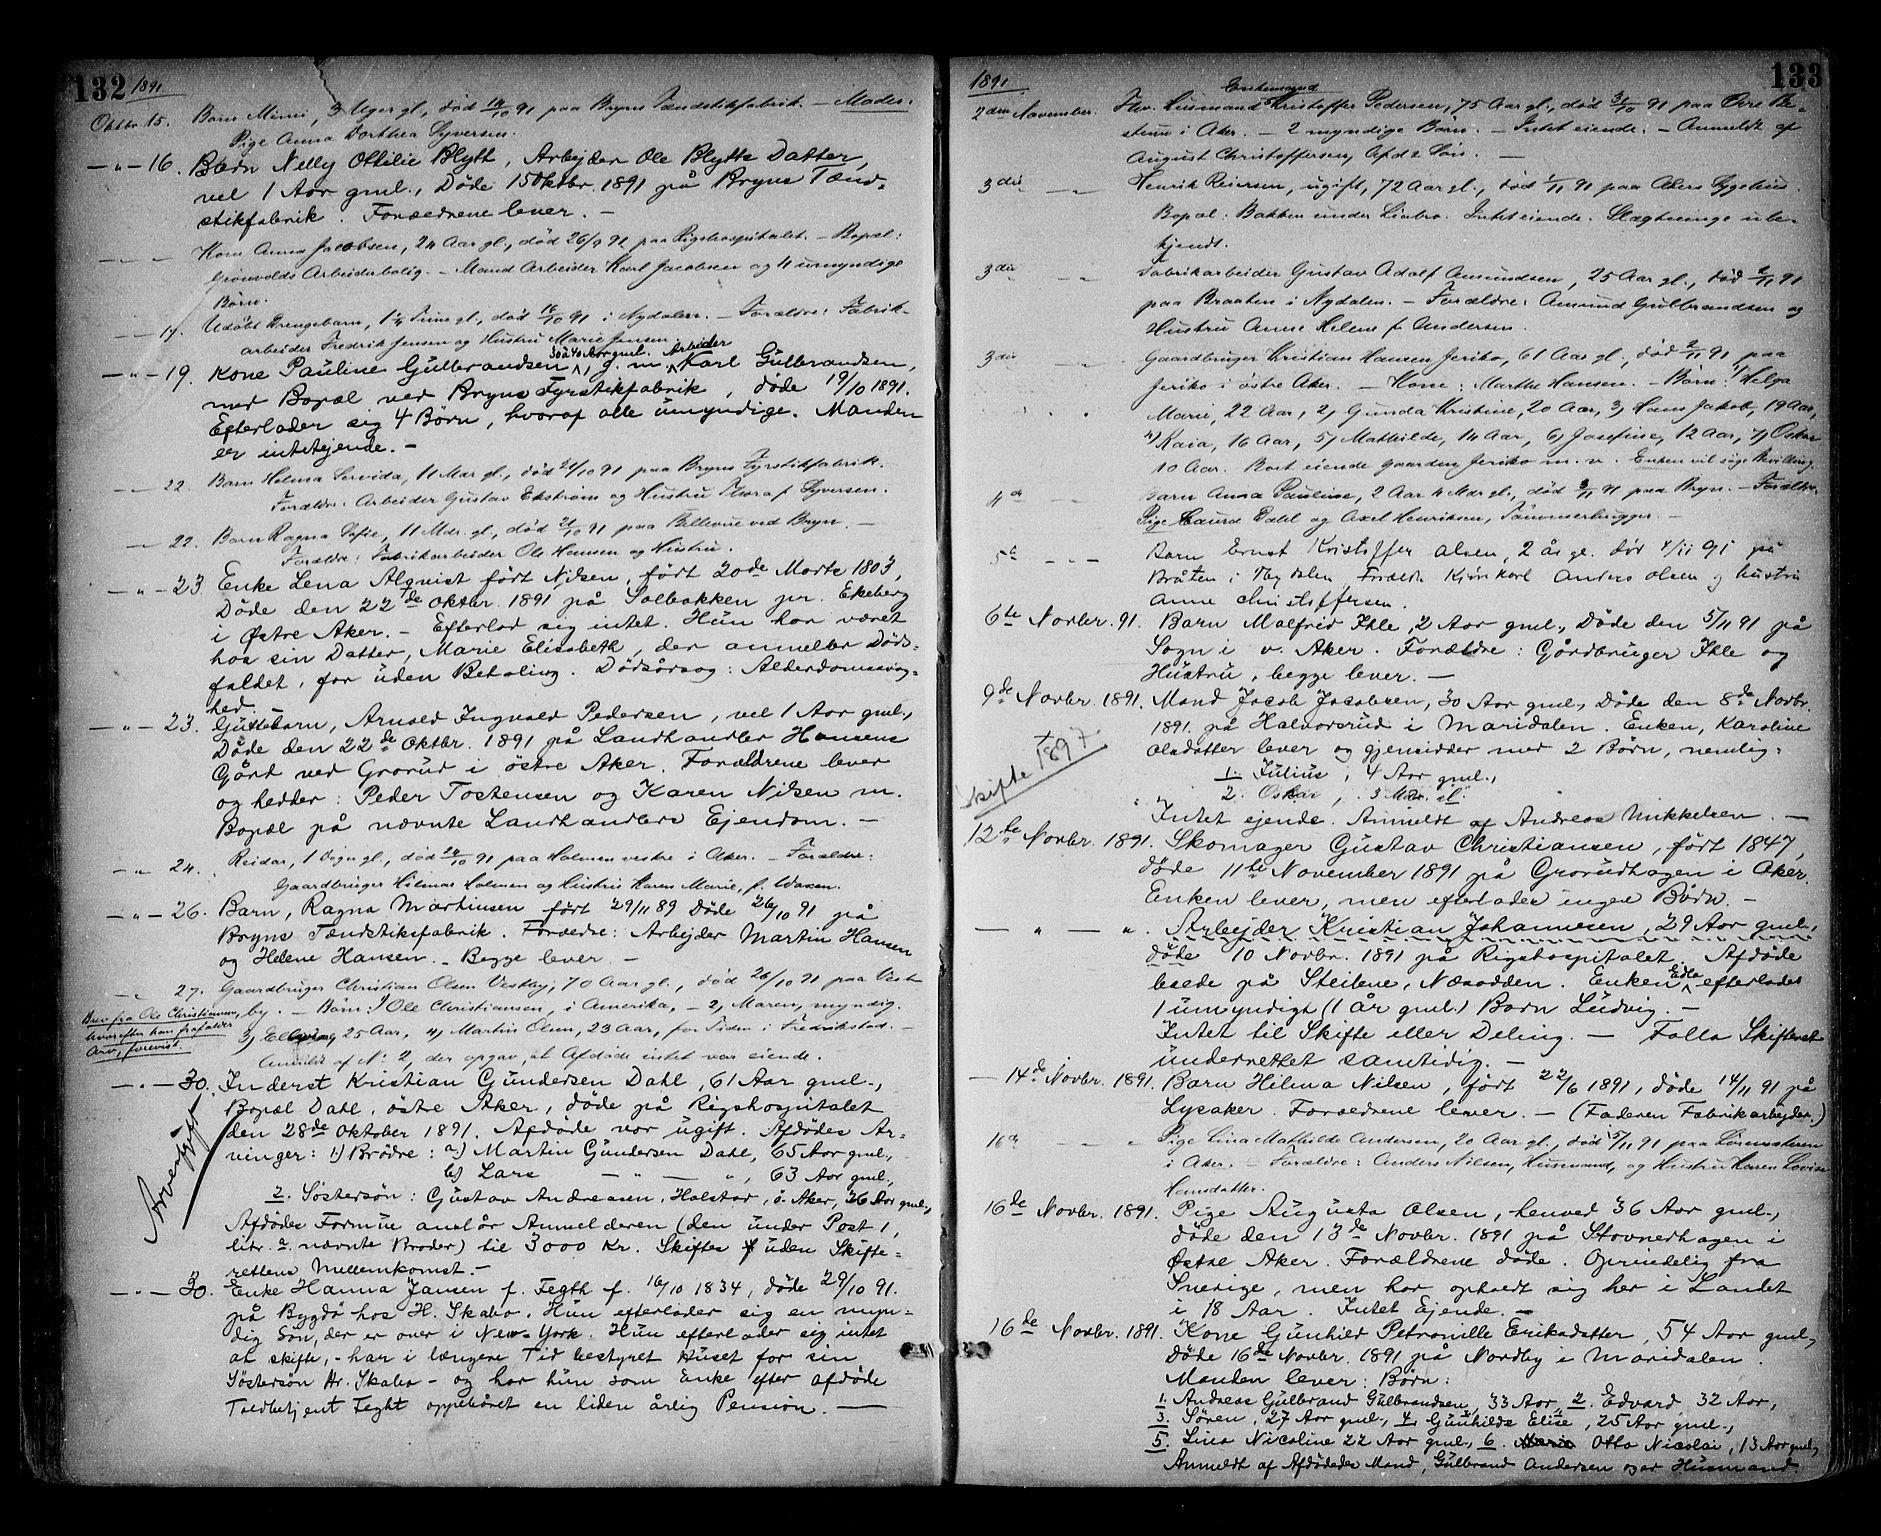 132 1891
Oktbr. 15. Barn Mimi, 3 Uger gl., død 14/10 91 paa Bryns Tændstikfabrik. — Moder:
Pige Anna Dorthea Syversen.
— " — 16. Barn Nelly Ottilie Blytt, Arbejder Ole Blytts Datter,
vel 1 Aar gml., Døde 15 Oktbr. 1891 på Bryns Tænd-
stikfabrik. Forældrene lever. —
— " — Kone Anna Jacobsen, 24 Aar gl., død 26/9 91 paa Rigshospitalet. — Bopæl:
Grönvolds Arbeiderbolig. — Mand Arbeider Karl Jacobsen og 4 umyndige
Børn.
— 17. Udøbt Drengebarn, 1 1/4 Time gl., død 16/10 91 i Nydalen. — Forældre: Fabrik-
arbeider Fredrik Jensen og Hustru Marie Jensen.
30 à 40 Aar gml. Arbeider
— " — 19. Kone Pauline Gulbrandsen, g. m. Karl Gulbrandsen,
med Bopæl ved Bryns Fyrstikfabrik, døde 19/10 1891.
Efterlader sig 4 Børn, hvoraf alle umyndige. Manden
er intetejende. —
— " — 22. Barn Helma Servida, 11 Mdr gl., død 21/10 91 paa Bryns Fyrstikfabrik.
Forældre: Arbeider Gustav Ekstrøm og Hustru Thora f. Syversen.
— " — 22. Barn Ragna Sofie, 11 Mdr. gl., død 21/10 91 paa Bellevue ved Bryn. —
Forældre: Fabrikarbeider Ole Hansen og Hustru.
— " — 23 Enke Lena Alqvist født Nilsen, født 20de Marts 1803,
Døde den 22de Oktbr. 1891 på Solbakken pr. Ekeberg
i Østre Aker. — Efterlod sig intet. Hun har været
hos sin Datter, Marie Elisabeth, der anmelder Døds-
faldet, for uden Betaling. Dødsårsag: Alderdomssvag-
hed. —
— " — 23. Guttebarn, Arnold Ingvald Pedersen, vel 1 Aar gml.,
Døde den 22de Oktbr. 1891 på Landhandler Hansens
Gård ved Grorud i østre Aker. Forældrene lever
og hedder: Peder Tostensen og Karen Nilsen m.
Bopæl på nævnte Landhandlers Ejendom. —
— " — 24. Reidar, 1 Døgn gl., død 24/10 91 paa Holmen vestre i Aker. — Forældre:
Gaardbruger Hilmar Holmen og Hustru Karen Marie, f.
— " — 26. Barn, Ragna Martinsen født 29/11 89 Døde 26/10 91 på
Bryns Tændstikfabrik. Forældre: Arbejder Martin Hansen
og Helene Hansen. — Begge lever. —
— " 27. Gaardbruger Christian Olsen Vestby, 70 Aar gl., død 26/10 91 paa Vest
by. — Børn: 1 Ole Christiansen, i Amerika, — 2, Maren, myndig.
Brev fra Ole Christiansen,
hvorefter han frafalder
Arv, forevist.
3, 25 Aar, 4, Martin Olsen, 23 Aar, for Tiden i Fredrikstad.
Anmeldt af No. 2, der opgav, at Afdøde intet var eiende.
— " — 30. Inderst Kristian Gundersen Dahl, 61 Aar gml.,
Bopæl Dahl, østre Aker, døde på Rigshospitalet
den 28de Oktober 1891. Afdøde var ugift. Afdødes Ar-
vinger: 1) Brødre: a) Martin Gundersen Dahl, 65 Aar gml.,
b) Lars — " — — ", 63 Aar gml.,
2. Søstersøn: Gustav Andreasen, Holstad, ö. Aker, 36 Aar gml.,
Arveafgift
Afdødes Formue anslår Anmelderen (den under Post 1,
litr. a. nævnte Broder) til 3000 Kr. Skiftes uden Skifte-
rettens Mellemkomst. —
— " — 30. Enke Hanna Jansen f. Fegth f. 16/10 1834, døde 29/10 91.
på Bygdö hos H. Skabo. Hun efterlader sig en myn-
dig Søn, der er over i New York. Hun efterlader sig intet
at skifte, — har i længere Tid bestyret Huset for sin
Søstersøn Hr. Skabo — og har hun som Enke efter afdøde
Toldbetjent Fegth oppebåret en liden årlig Pension. —
1891 133
Enkemand
2den November. Fhv. Husmand Kristoffer Pedersen, 75 Aar gl., død 31/10 91 paa Øvre Be-
stum i Aker. — 2 myndige Børn. — Intet eiende. — Anmeldt af
August Christoffersen, Afd.s Søn. —
3die — " — Henrik Reiersen, ugift, 72 Aar gl., død 1/11 91 paa Akers Sygehus.
Bopæl: Bakken under Liabro. Intet eiende. Slægtninge ube-
kjendt.
3die " Fabrikarbeider Gustav Adolf Amundsen, 25 Aar gl., død 2/11 91
paa Braaten i Nydalen. — Forældre: Amund Gulbrandsen og
Hustru Anne Helene f. Andersen.
3die — " — Gaardbruger Kristian Hansen Jeriko, 61 Aar gl., død 2/11 91 paa
Jeriko i østre Aker. — Kone: Marthe Hansen. — Børn: 1) Helga
Marie, 22 Aar, 2, Gunda Kristine, 20 Aar, 3, Hans Jakob, 19 Aar,
4) Kaia, 16 Aar, 5, Mathilde, 14 Aar, 6, Josefine, 12 Aar, 7, Oskar
10 Aar. Boet eiende Gaarden Jeriko m. v. Enken vil søge Bevilling.
4de — " — Barn Anna Pauline, 2 Aar 4 Mdr gl., død 3/11 91 paa Bryn. — Forældre:
Pige Laura Dahl og Axel Henriksen, Tømmerhugger. —
5te — " — Barn Ernst Kristoffer Olsen, 2 år gl. død 4/11 91 på
Bråten i Nydalen. Foræld. Anders Olsen og hustru
Anne Christoffersen.
6te Novbr. 91. Barn Malfrid Ihle, 2 Aar gml., Døde den 5/11 91 på
Sogn i v. Aker. Forældre: Gårdbruger Ihle og
Hustru, begge lever. —
9de Novbr. 1891. Mand Jacob Jacobsen, 30 Aar gml., Døde den 8de Novbr.
1891 på Halvorsrud i Maridalen. Enken, Karoline
Olsdatter lever og gjensidder med 2 Børn, nemlig:
Skifte 1897
1. Julius, 4 Aar gml.,
2. Oskar, 3 Mdr. gl.
Intet ejende. Anmeldt af Andreas Mikkelsen. —
12te Novbr. 1891. Skomager Gustav Christiansen, født 1847,
døde 11te November 1891 på Grorudhagen i Aker.
Enken lever, men efterlader ingen Børn. —
— " — ". Arbejder Kristian Johannesen, 29 Aar gml.,
døde 10 Novbr. 1891 på Rigshospitalet. Afdøde
boede på Steilene, Næsodden. Enken Edle efterlades
1 umyndigt (1 år gml.) Barn Ludvig. —
Intet til Skifte eller Deling. — Follo Skifteret
underrettet samtidig. —
— 14de Novbr. 1891. Barn Hilma Nilsen, født 22/6 1891, døde 14/11 91 på
Lysaker. Forældrene lever. — (Faderen Fabrikarbejder.)
16de — " Pige Lina Mathilde Andersen, 20 Aar gl., død 15/11 91 paa
i Aker. — Forældre: Anders Nilsen, Husmand, og Hustru Karen Lovise
Hansdatter.
16de Novbr. 1891. Pige Augusta Olsen, henved 36 Aar gml.,
døde den 13de Novbr. 1891 på Stovnerhagen i
Østre Aker. Forældrene døde. Oprindelig fra
Sverige, men har opholdt sig her i Landet
i 18 Aar. Intet Ejende. —
16de Novbr. 1891. Kone Gunhild Petronille Eriksdatter, 54 Aar gml.,
Døde 16de Novbr. 1891 på Nordby i Maridalen.
Manden lever: Børn:
1. Andreas Gulbrand Gulbrandsen, 33 Aar, 2. Edvard, 32 Aar,
3. Søren, 27 Aar gml., 4. Gunhilde Elise, 25 Aar gml.,
5. Lina Nicoline 22 Aar gml., 6. Otto Nicolai, 13 Aar gml.,
Anmeldt af Afdødedes Mand, Gulbrand Andersen og er Husmand.